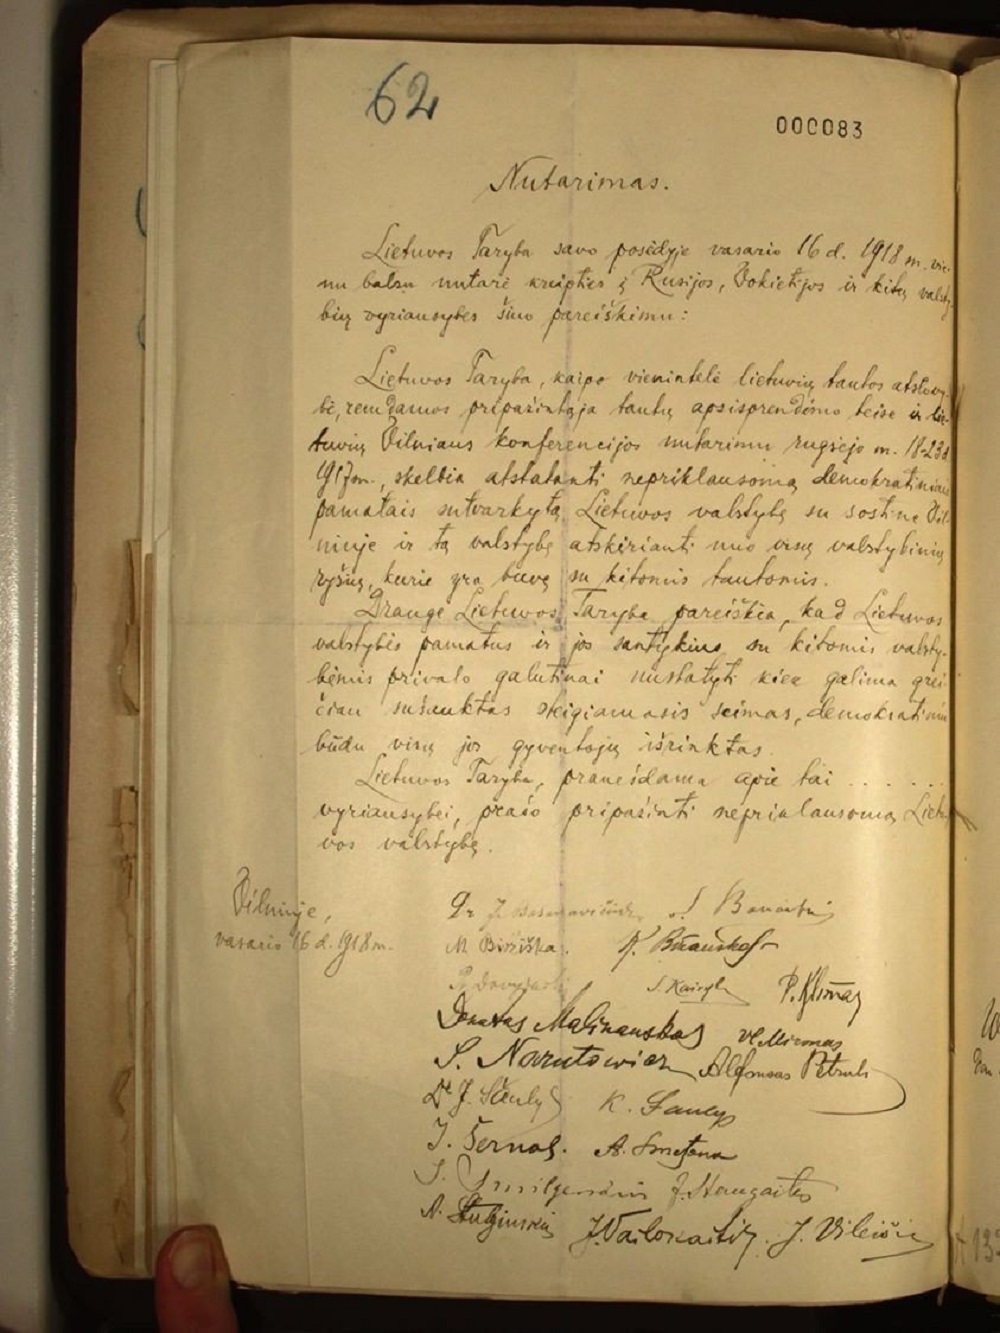 62
000083
Nutarimas.
Lietuvos Taryba savo posėdyje vasario 16 d. 1918 m. vie-
nu balsu nutarė kreipties į Rusijos, Vokietijos ir kitų valsty-
bių vyriausybes šiuo pareiškimu:
Lietuvos Taryba, kaipo vienintelė lietuvių tautos atstovy-
bė, remdamos pripažintąja tautų apsisprendimo teise ir lie-
tuvių Vilniaus konferencijos nutarimu rugsėjo m. 18-23 d
1917 m., skelbia atstatanti nepriklausomą demokratiniais
pamatais sutvarkytą Lietuvos valstybę su sostine Vil-
niuje ir tą valstybę atskirianti nuo visų valstybinių
ryšių, kurie yra buvę su kitomis tautomis.
Drauge Lietuvos Taryba pareiškia, kad Lietuvos
valstybės pamatus ir jos santykius su kitomis valsty-
bėmis privalo galutinai nustatyti kiek galima grei-
čiau sušauktas steigiamasis seimas, demokratiniu
būdu visų jos gyventojų išrinktas.
Lietuvos Taryba, pranešdama apie tai . . . . . .
vyriausybei, prašo pripažinti nepriklausomą Lietu-
vos valstybę.
Vilniuje,
vasario 16 d. 1918 m.
Dr J. Basanavičius S. Banaitis
M. Biržiška. K. Bizauskas
P. Dovydaitis S. Kairys P. Klimas
Donatas Malinauskas Vl. Mironas
S. Narutowicz Alfonsas Petrulis
Dr J. Šaulys K. Šaulys
J. Šernas. A. Smetona
J. Smilgevičius J. Staugaitis
A. Stulginskis J. Vailokaitis. J. Vileišis